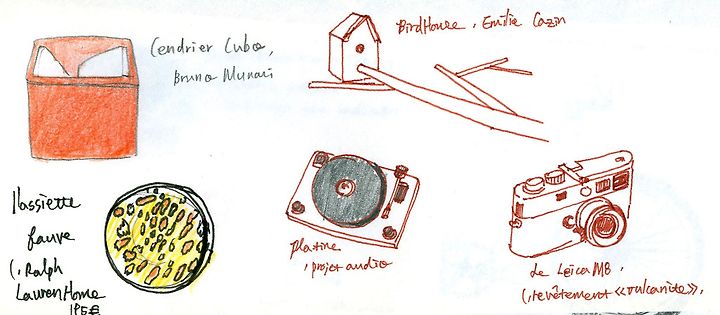 Cendrier Cubo,
Bruno Munari
BirdHouse, Emilie Cazin
l'assiette
fauve
(, Ralph
Lauren Home
195€
platine
, projet audio
Le Leica M8,
(, revêtement «vulcanite»,